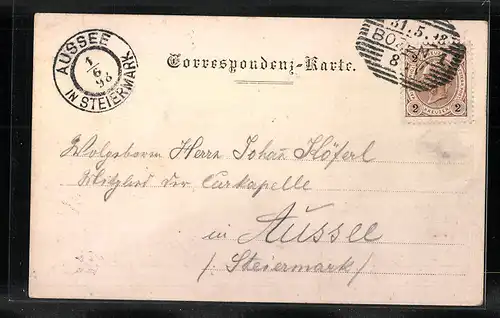 AUSSEE
1
6
98
IN STEIERMARK
31.5.
BOZEN 1
8
Correspondenz-Karte.
2 2
Wolgeborn Herrn Johan̄ Köferl
Mitglied der Curkapelle
in Aussee
/: Steiermark/